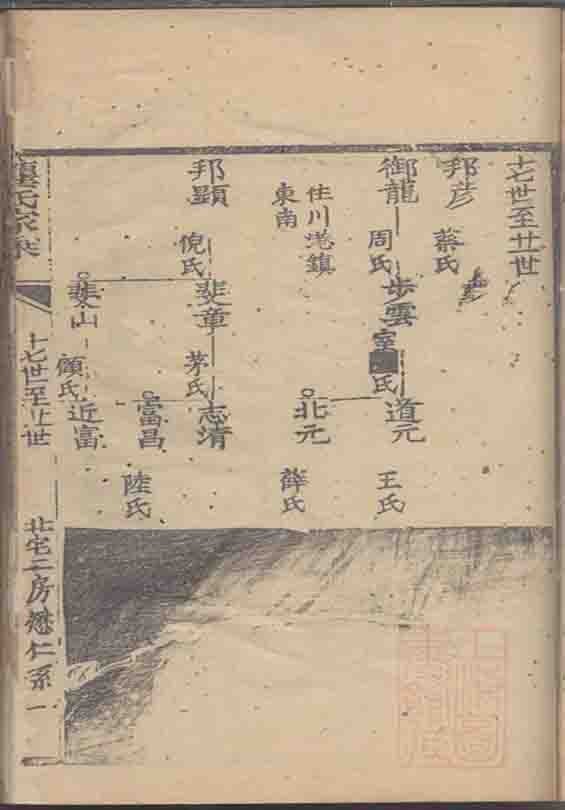 十七世至廿世
邦彦
蔡氏
御龍
周氏
步雲
室
氏
道元
王氏
住川港鎮
東南
北元
薛氏
邦顯
倪氏
斐章
茅氏
志清
富昌
陸氏
斐山
顧氏
近富
氏家乘
十七世至廿世
北宅二房懋仁系
一